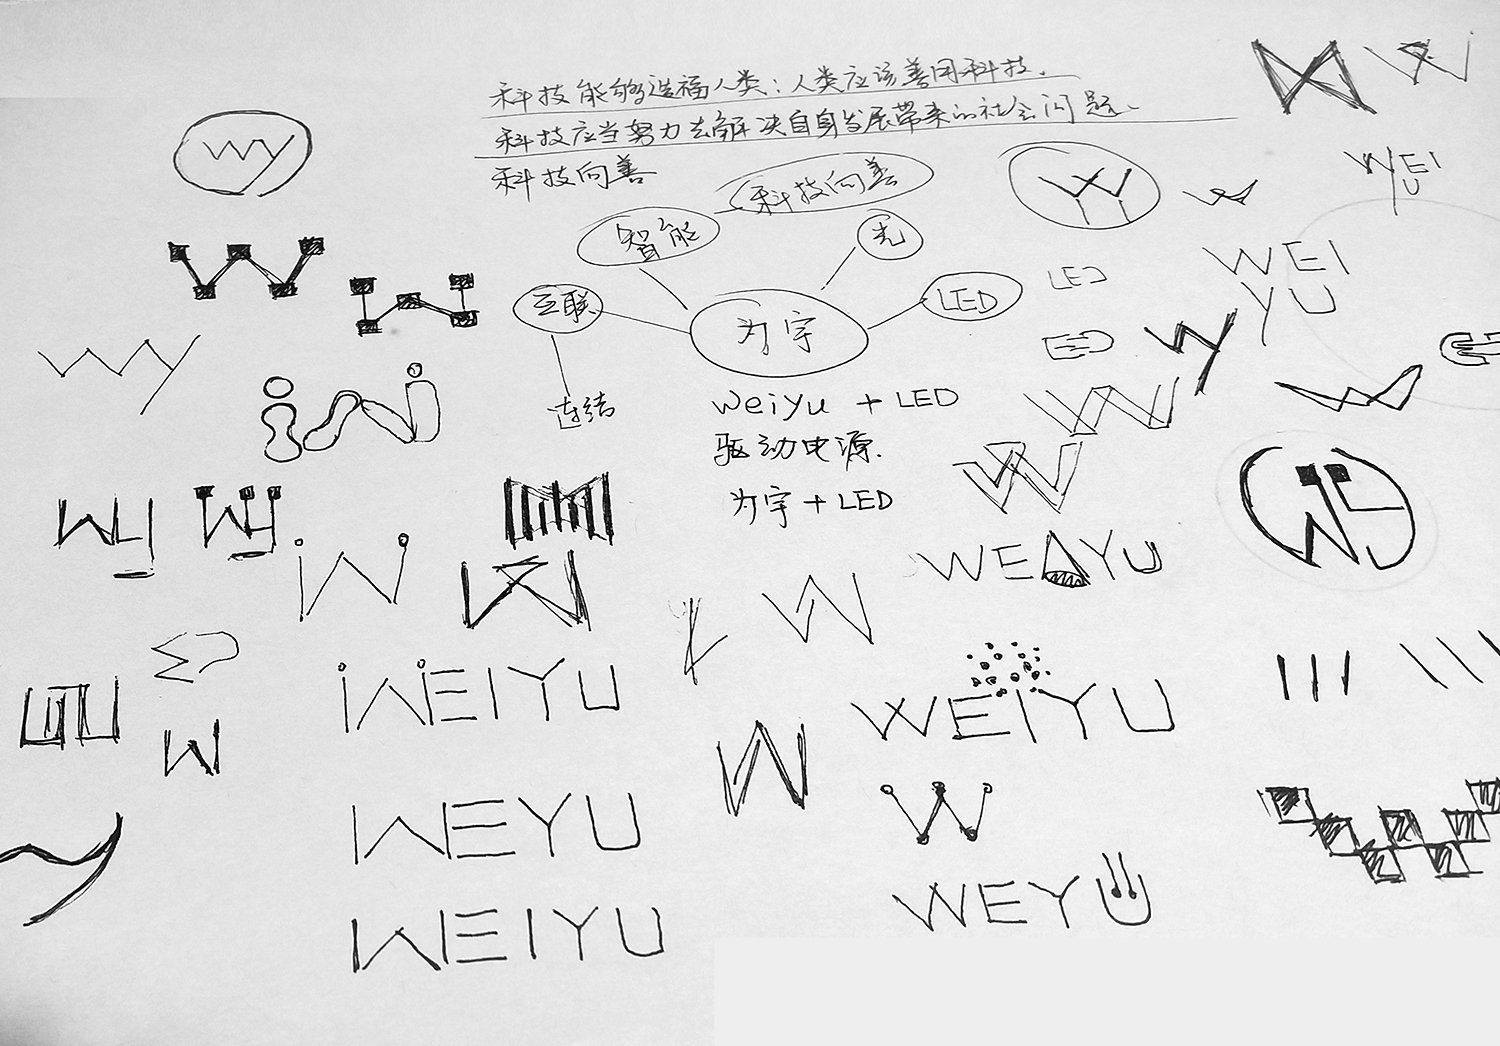 科技能够造福人类；人类应该善用科技.
科技应当努力去解决自身发展带来的社会问题、
科技向善
科技向善
智能
光
互联
LED
为宇
连结
weiyu + LED
驱动电源.
为宇 + LED
WY
WY
WY
WY
W
W
WEIYU
WEYU
WEIYU
WY
W
WEI
YU
WEI
YU
LED
LED
WY
W
W
W
WE YU
W
WEIYU
W
W
WEYU